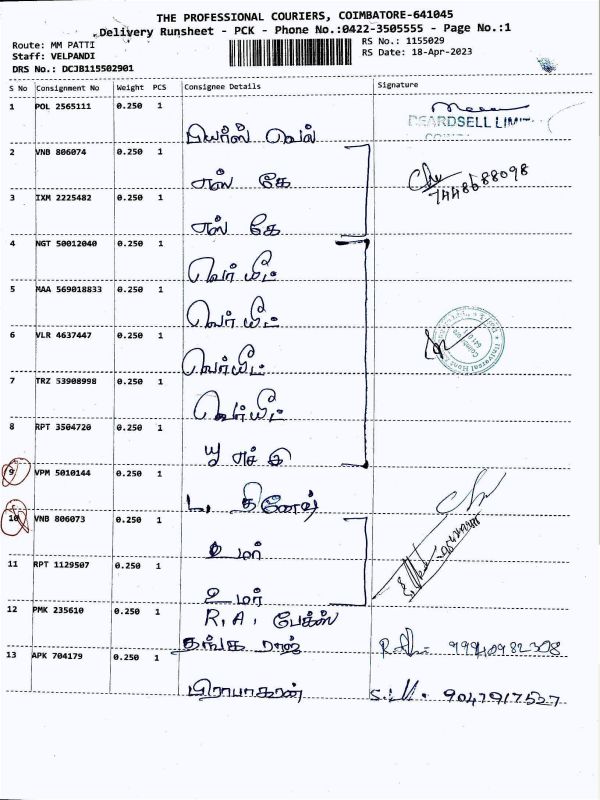 THE PROFESSIONAL COURIERS, COIMBATORE-641045
Delivery Runsheet - PCK - Phone No.:0422-3505555 - Page No.:1
Route: MM PATTI
Staff: VELPANDI
DRS No.: DCJB115502901
RS No.: 1155029
RS Date: 18-Apr-2023
S No Consignment No Weight PCS Consignee Details Signature
1 POL 2565111 0.250 1
BEARDSELL LIMIT
2 VNB 806074 0.250 1
எஸ் கே
7448688098
3 IXM 2225482 0.250 1
எஸ் கே
4 NGT 50012040 0.250 1
வெர் யீட்
5 MAA 569018833 0.250 1
வெர் யீட்
6 VLR 4637447 0.250 1
வெர்யீட்
7 TRZ 53908998 0.250 1
வெர்யீட்
8 RPT 3504720 0.250 1
யு எச் இ
9 VPM 5010144 0.250 1
L. தினேஷ்
10 VNB 806073 0.250 1
உமர்
11 RPT 1129507 0.250 1
உமர்
12 PMK 235610 0.250 1
R, A, பேக்ஸ்
தங்க ராஜ் 99940982308
13 APK 704179 0.250 1
பிரபாகரன் 9047917527